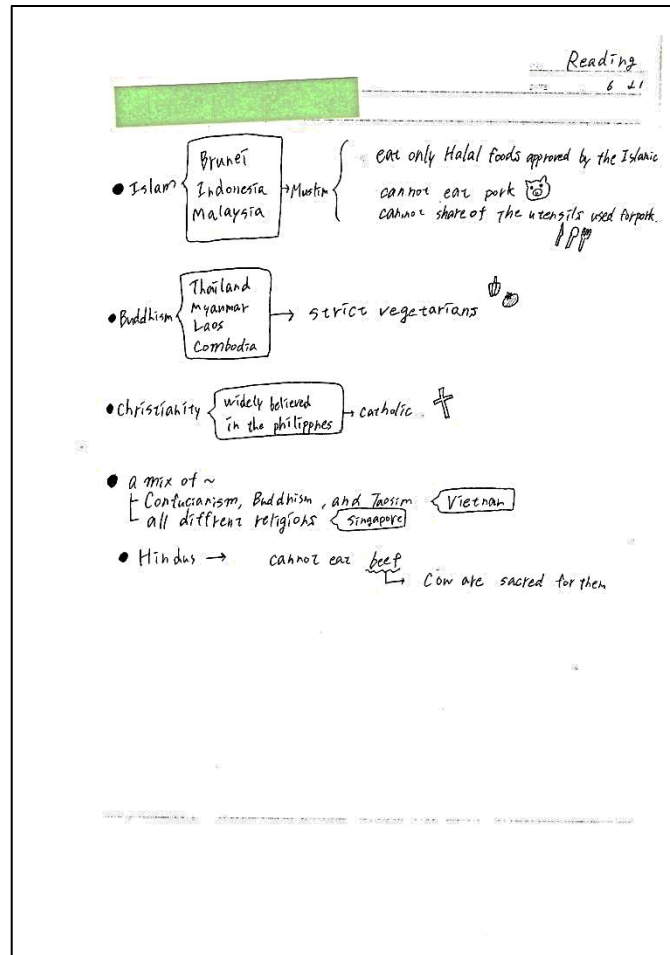 Reading
6 21
● Islam Brunei Indonesia Malaysia → Muslim
eat only Halal foods approved by the Islamic
cannot eat pork
cannot share of the utensils used for pork.
● Buddhism Thailand Myanmar Laos Combodia → strict vegetarians
● Christianity widely believed in the philippnes → catholic
● a mix of ~
Confucianism, Buddhism, and Taosim Vietnam
all diffrent religions Singapore
● Hindus → cannot eat beef
↳ Cow are sacred for them